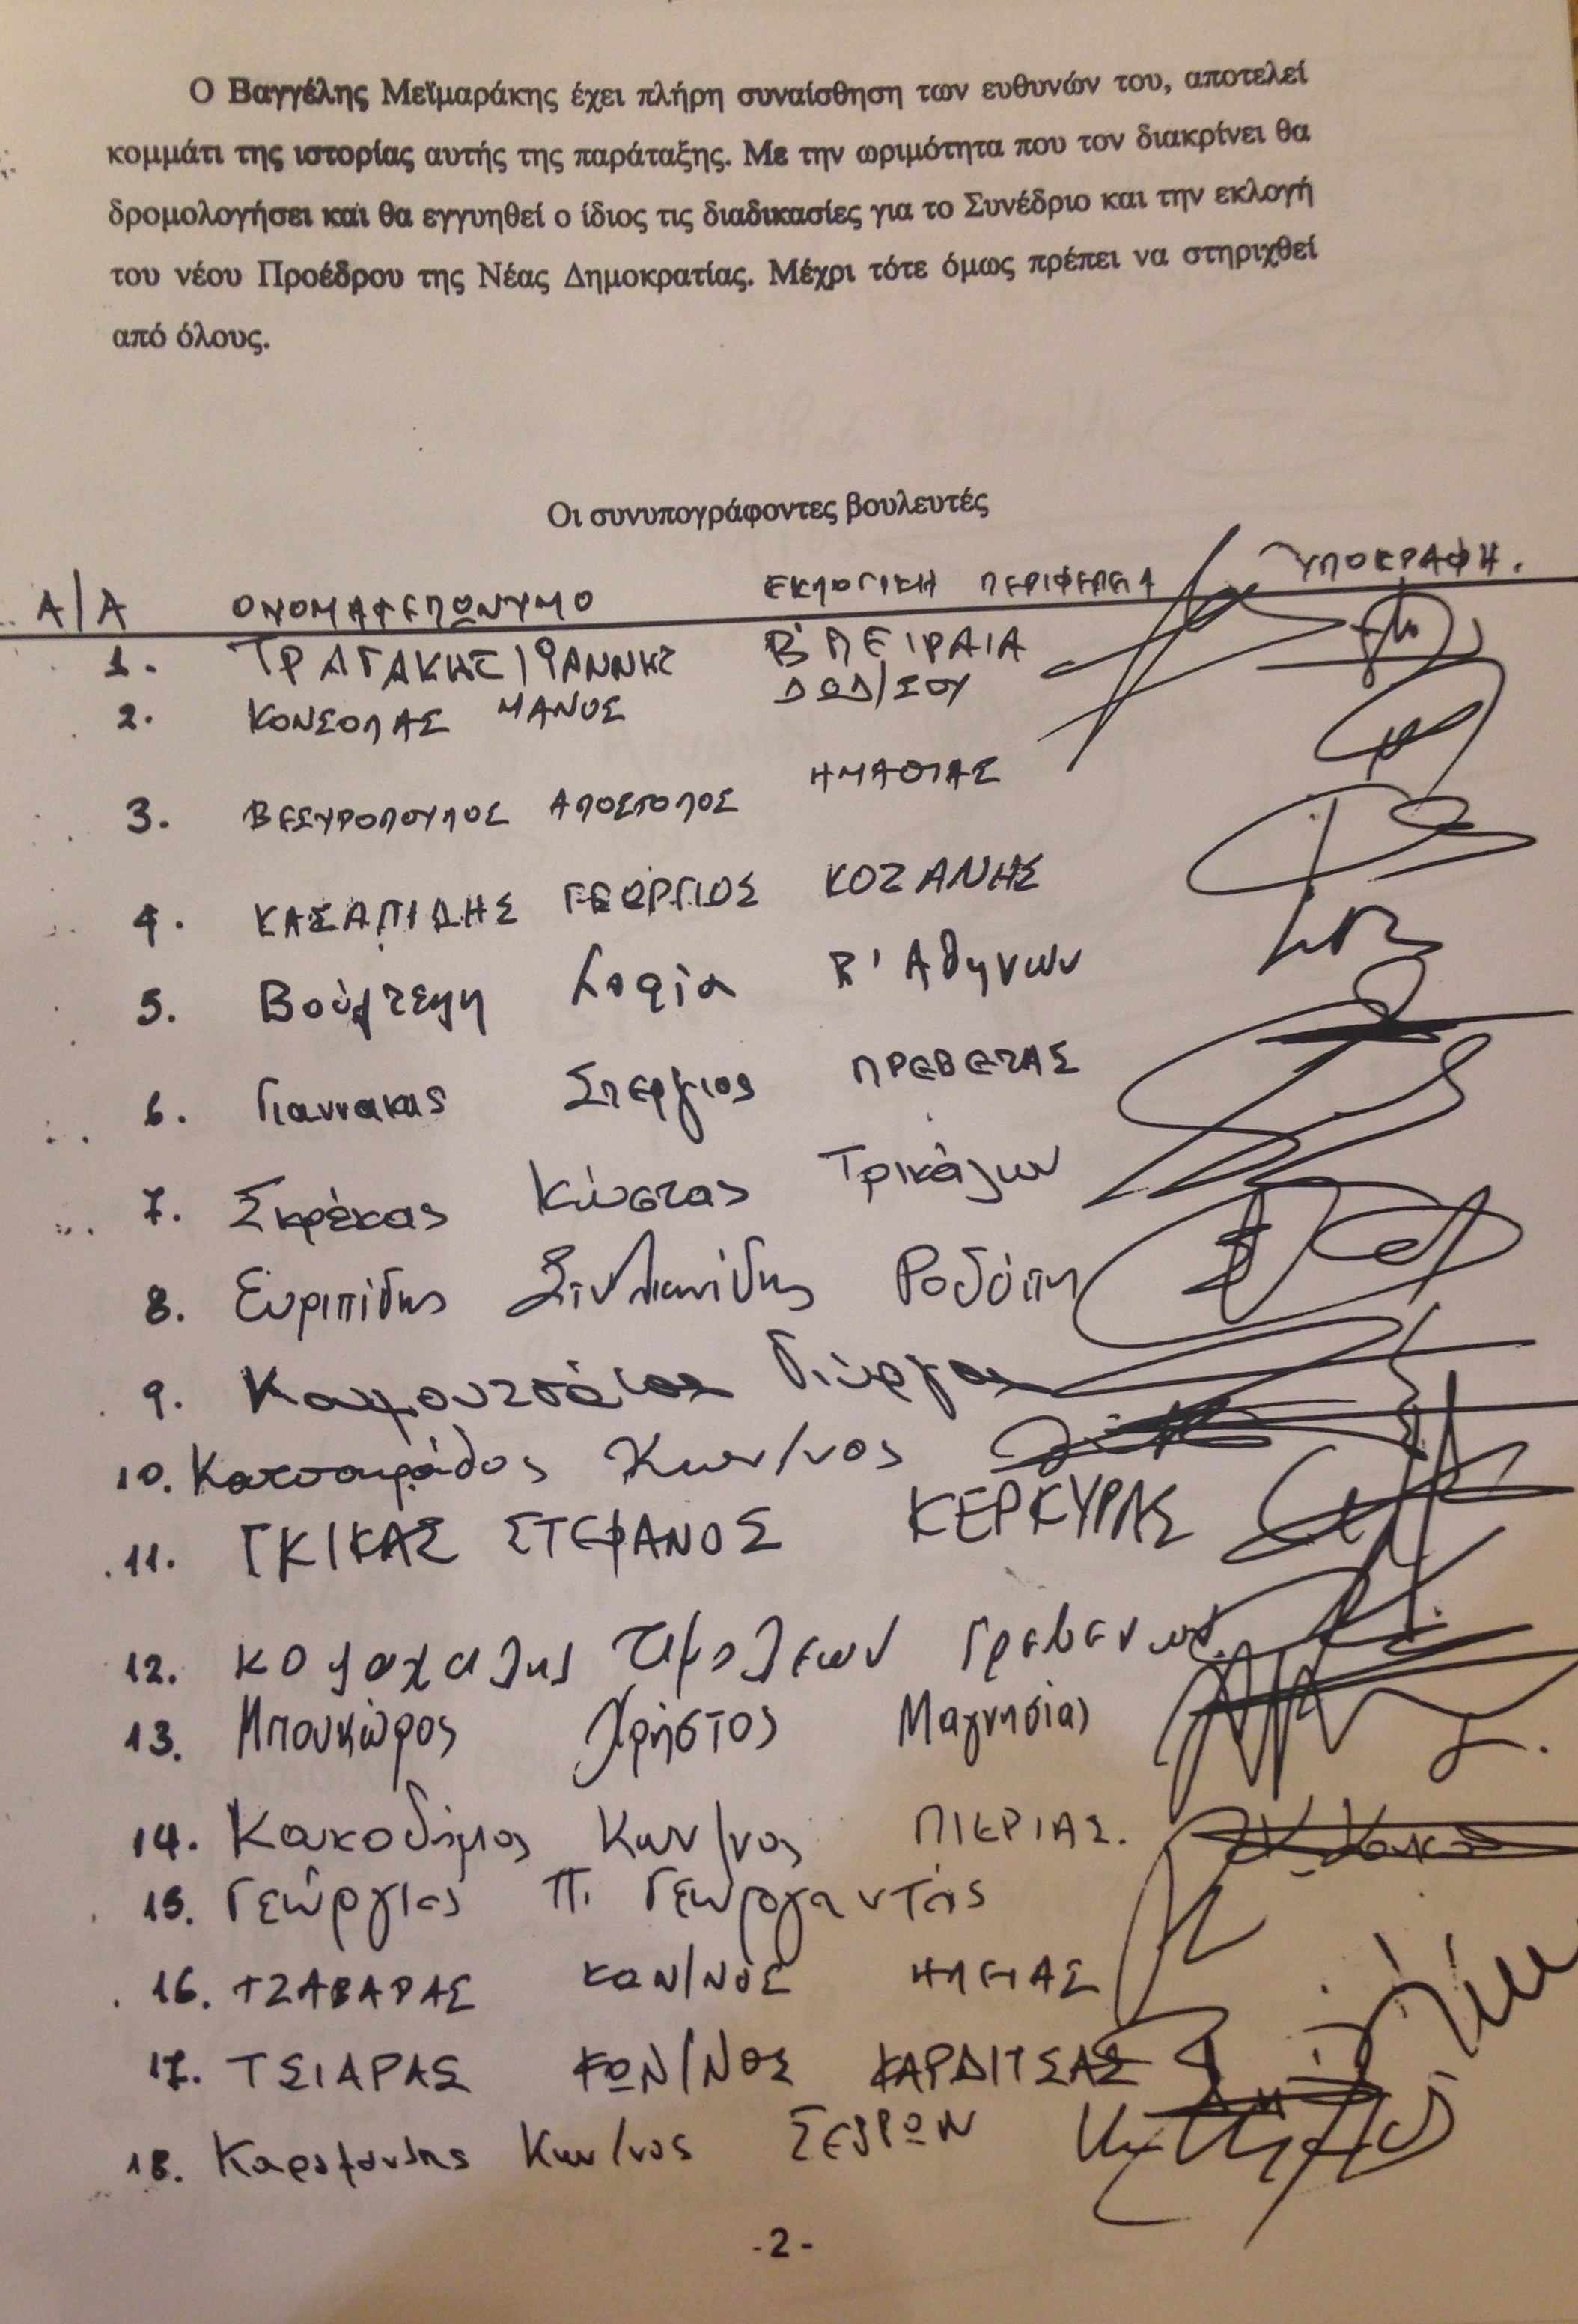 Ο Βαγγέλης Μεϊμαράκης έχει πλήρη συναίσθηση των ευθυνών του, αποτελεί
κομμάτι της ιστορίας αυτής της παράταξης. Με την ωριμότητα που τον διακρίνει θα
δρομολογήσει και θα εγγυηθεί ο ίδιος τις διαδικασίες για το Συνέδριο και την εκλογή
του νέου Προέδρου της Νέας Δημοκρατίας. Μέχρι τότε όμως πρέπει να στηριχθεί
από όλους.
Οι συνυπογράφοντες βουλευτές
Α/Α ΟΝΟΜΑΤΕΠΩΝΥΜΟ ΕΚΛΟΓΙΚΗ ΥΠΟΓΡΑΦΗ.
1. ΤΡΑΓΑΚΗΣ ΙΩΑΝΝΗΣ Β' ΠΕΙΡΑΙΑ
2. ΚΟΝΣΟΛΑΣ ΜΑΝΟΣ ΔΩΔ/ΣΟΥ
3. ΒΕΣΥΡΟΠΟΥΛΟΣ ΑΠΟΣΤΟΛΟΣ ΗΜΑΘΙΑΣ
4. ΚΑΣΑΠΙΔΗΣ ΓΕΩΡΓΙΟΣ ΚΟΖΑΝΗΣ
5. Βούλτεψη Σοφία Β' Αθηνών
6. Γιαννακης Στεργιος ΠΡΕΒΕΖΑΣ
7. Σκρέκας Κώστας Τρικάλων
8. Ευριπίδης Στυλιανίδης Ροδόπη
9. Καρουτσάκος Γιώργος
10. Κατσαφάδος Κων/νος
11. ΓΚΙΚΑΣ ΣΤΕΦΑΝΟΣ ΚΕΡΚΥΡΑΣ
12. Τιμολεων Γρεβενων
13. Μπουκώρος Χρήστος Μαγνησίας
14. Κων/νος ΠΙΕΡΙΑΣ.
15. Γεώργιος Π. Γεωργαντάς
16. ΤΖΑΒΑΡΑΣ ΚΩΝ/ΝΟΣ ΗΛΕΙΑΣ
17. ΤΣΙΑΡΑΣ ΚΩΝ/ΝΟΣ ΚΑΡΔΙΤΣΑΣ
18. Καραμανλης Κων/νος ΣΕΡΡΩΝ
- 2 -